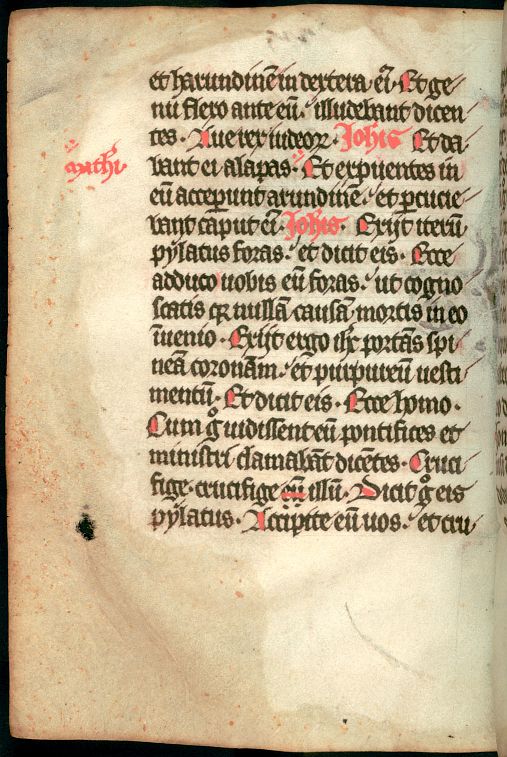 et harundinē in dextera eī. Et ge
nu flexo ante eū. illudebant dicen
tes. Aue rex iudeoꝝ. Joh̄is Et da
mathi
bant ei alapas. Et expuentes in
eū acceperunt arundinē. et ꝑcucie
bant caput eī. Joh̄is. Exijt iterū
pylatus foras. et dicit eis. Ecce
adduco uobis eū foras. ut cogno
scatis qꝛ nullā causā mortis in eo
īuenio. Exijt ergo ih̄c portās spi
neā coronam. et purpureū uesti
mentū. Et dicit eis. Ecce homo.
Cum gͦ uidissent eū pontifices et
ministri clamabāt dicētes. Cruci
fige. crucifige eū illū. Dicit gͦ eis
pylatus. Accipite eū uos. et cru